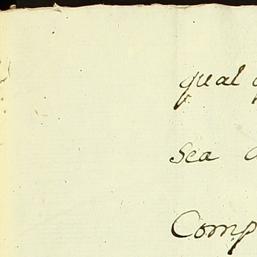 qual
sea
Comp